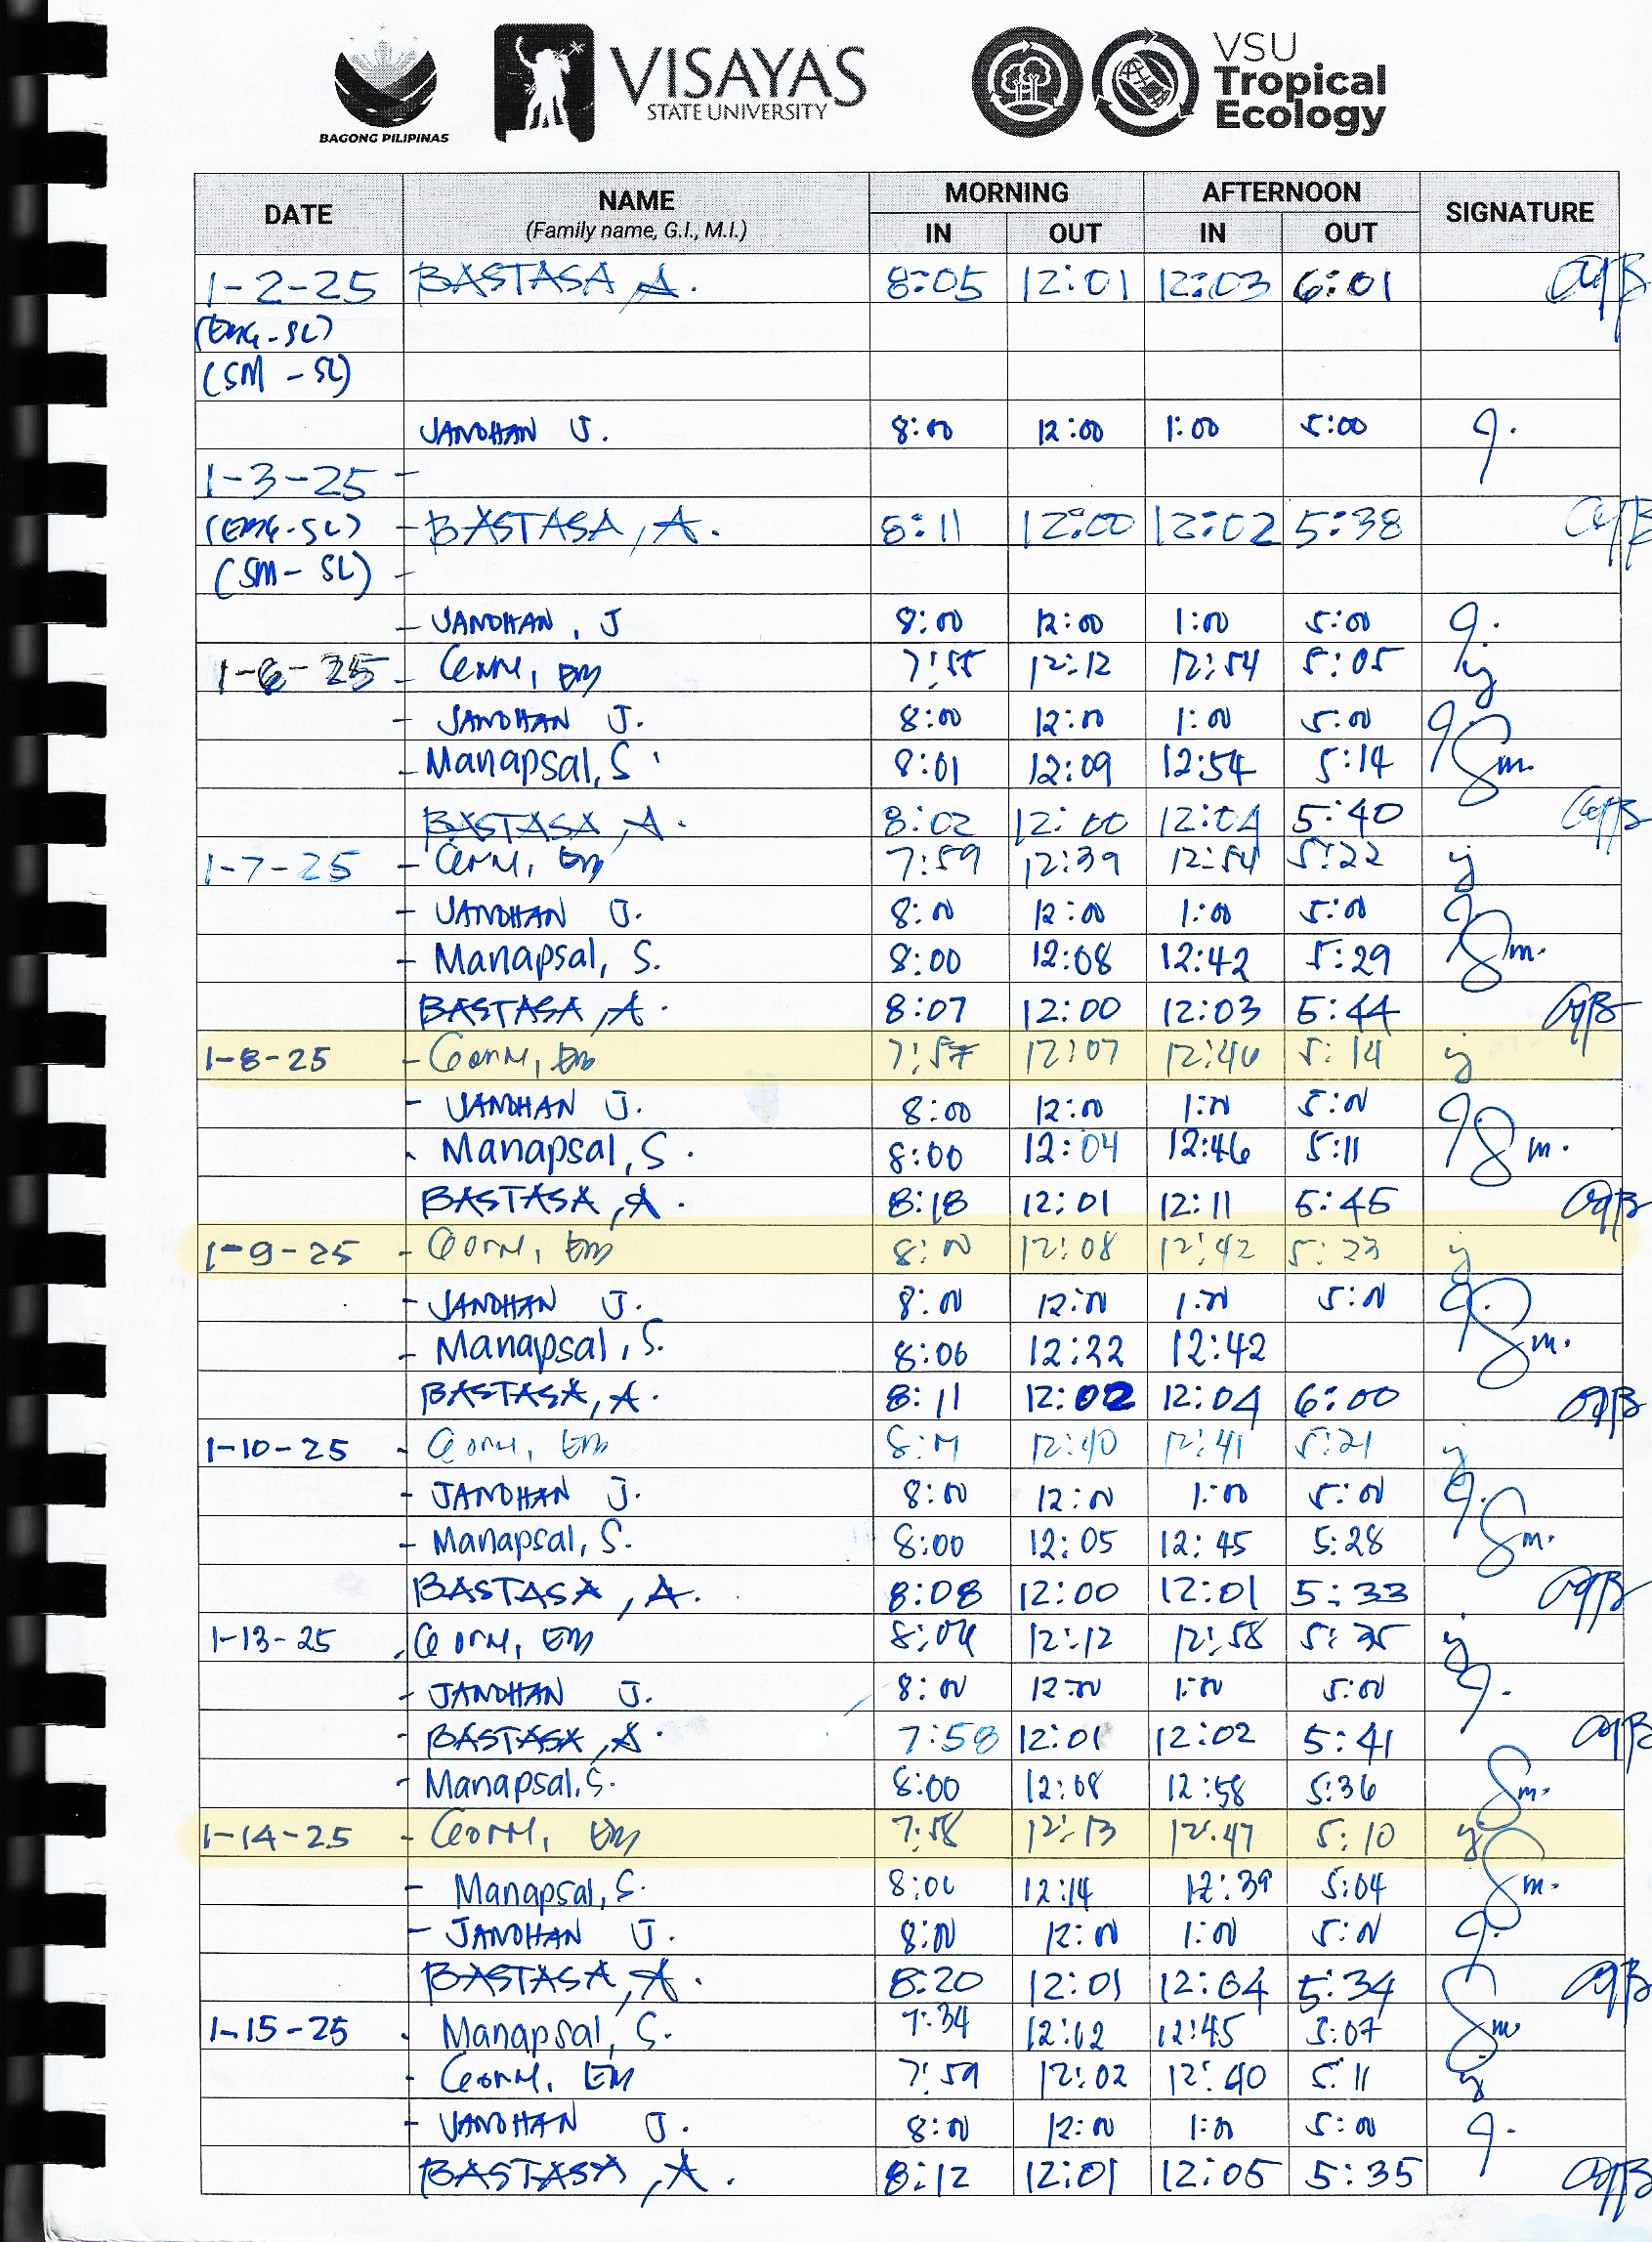 BAGONG PILIPINAS
VISAYAS
STATE UNIVERSITY
VSU
Tropical
Ecology
DATE NAME (Family name, G.I., M.I.) MORNING AFTERNOON SIGNATURE
IN OUT IN OUT
1-2-25 BASTASA, A. 8:05 12:01 12:03 6:01
(EMG-SL)
(SM-SL)
JANDHAN J. 8:00 12:00 1:00 5:00
1-3-25 -
(EMG-SL) - BASTASA, A. 8:11 12:00 12:02 5:38
(SM-SL) -
- JANDHAN, J 8:00 12:00 1:00 5:00
1-6-25 - 7:55 12:12 12:54 5:05
- JANDHAN J. 8:00 12:00 1:00 5:00
- Manapsal, S. 8:01 12:09 12:54 5:14 Sm.
BASTASA, A. 8:02 12:00 12:04 5:40
1-7-25 - 7:59 12:39 12:54 5:22
- JANDHAN J. 8:00 12:00 1:00 5:00
- Manapsal, S. 8:00 12:08 12:42 5:29 Sm.
BASTASA, A. 8:07 12:00 12:03 5:44
1-8-25 - 7:57 12:07 12:46 5:14
- JANDHAN J. 8:00 12:00 1:00 5:00
- Manapsal, S. 8:00 12:04 12:46 5:11 Sm.
BASTASA, A. 8:18 12:01 12:11 5:45
1-9-25 - 8:00 12:08 12:42 5:23
- JANDHAN J. 8:00 12:00 1:00 5:00
- Manapsal, S. 8:06 12:22 12:42 Sm.
BASTASA, A. 8:11 12:02 12:04 6:00
1-10-25 - 12:40 12:41 5:21
- JANDHAN J. 8:00 12:00 1:00 5:00
- Manapsal, S. 8:00 12:05 12:45 5:28 Sm.
BASTASA, A. 8:08 12:00 12:01 5:33
1-13-25 12:12 12:58 5:35
- JANDHAN J. 8:00 12:00 1:00 5:00
- BASTASA, A. 7:58 12:01 12:02 5:41
- Manapsal, S. 8:00 12:08 12:58 5:36 Sm.
1-14-25 - 7:58 12:13 12:47 5:10
- Manapsal, S. 8:00 12:14 12:39 5:04 Sm.
- JANDHAN J. 8:00 12:00 1:00 5:00
BASTASA, A. 8:20 12:01 12:04 5:34
1-15-25 Manapsal, S. 7:34 12:02 12:45 5:07 Sm
- 7:59 12:02 12:40 5:11
- JANDHAN J. 8:00 12:00 1:00 5:00
BASTASA, A. 8:12 12:01 12:05 5:35